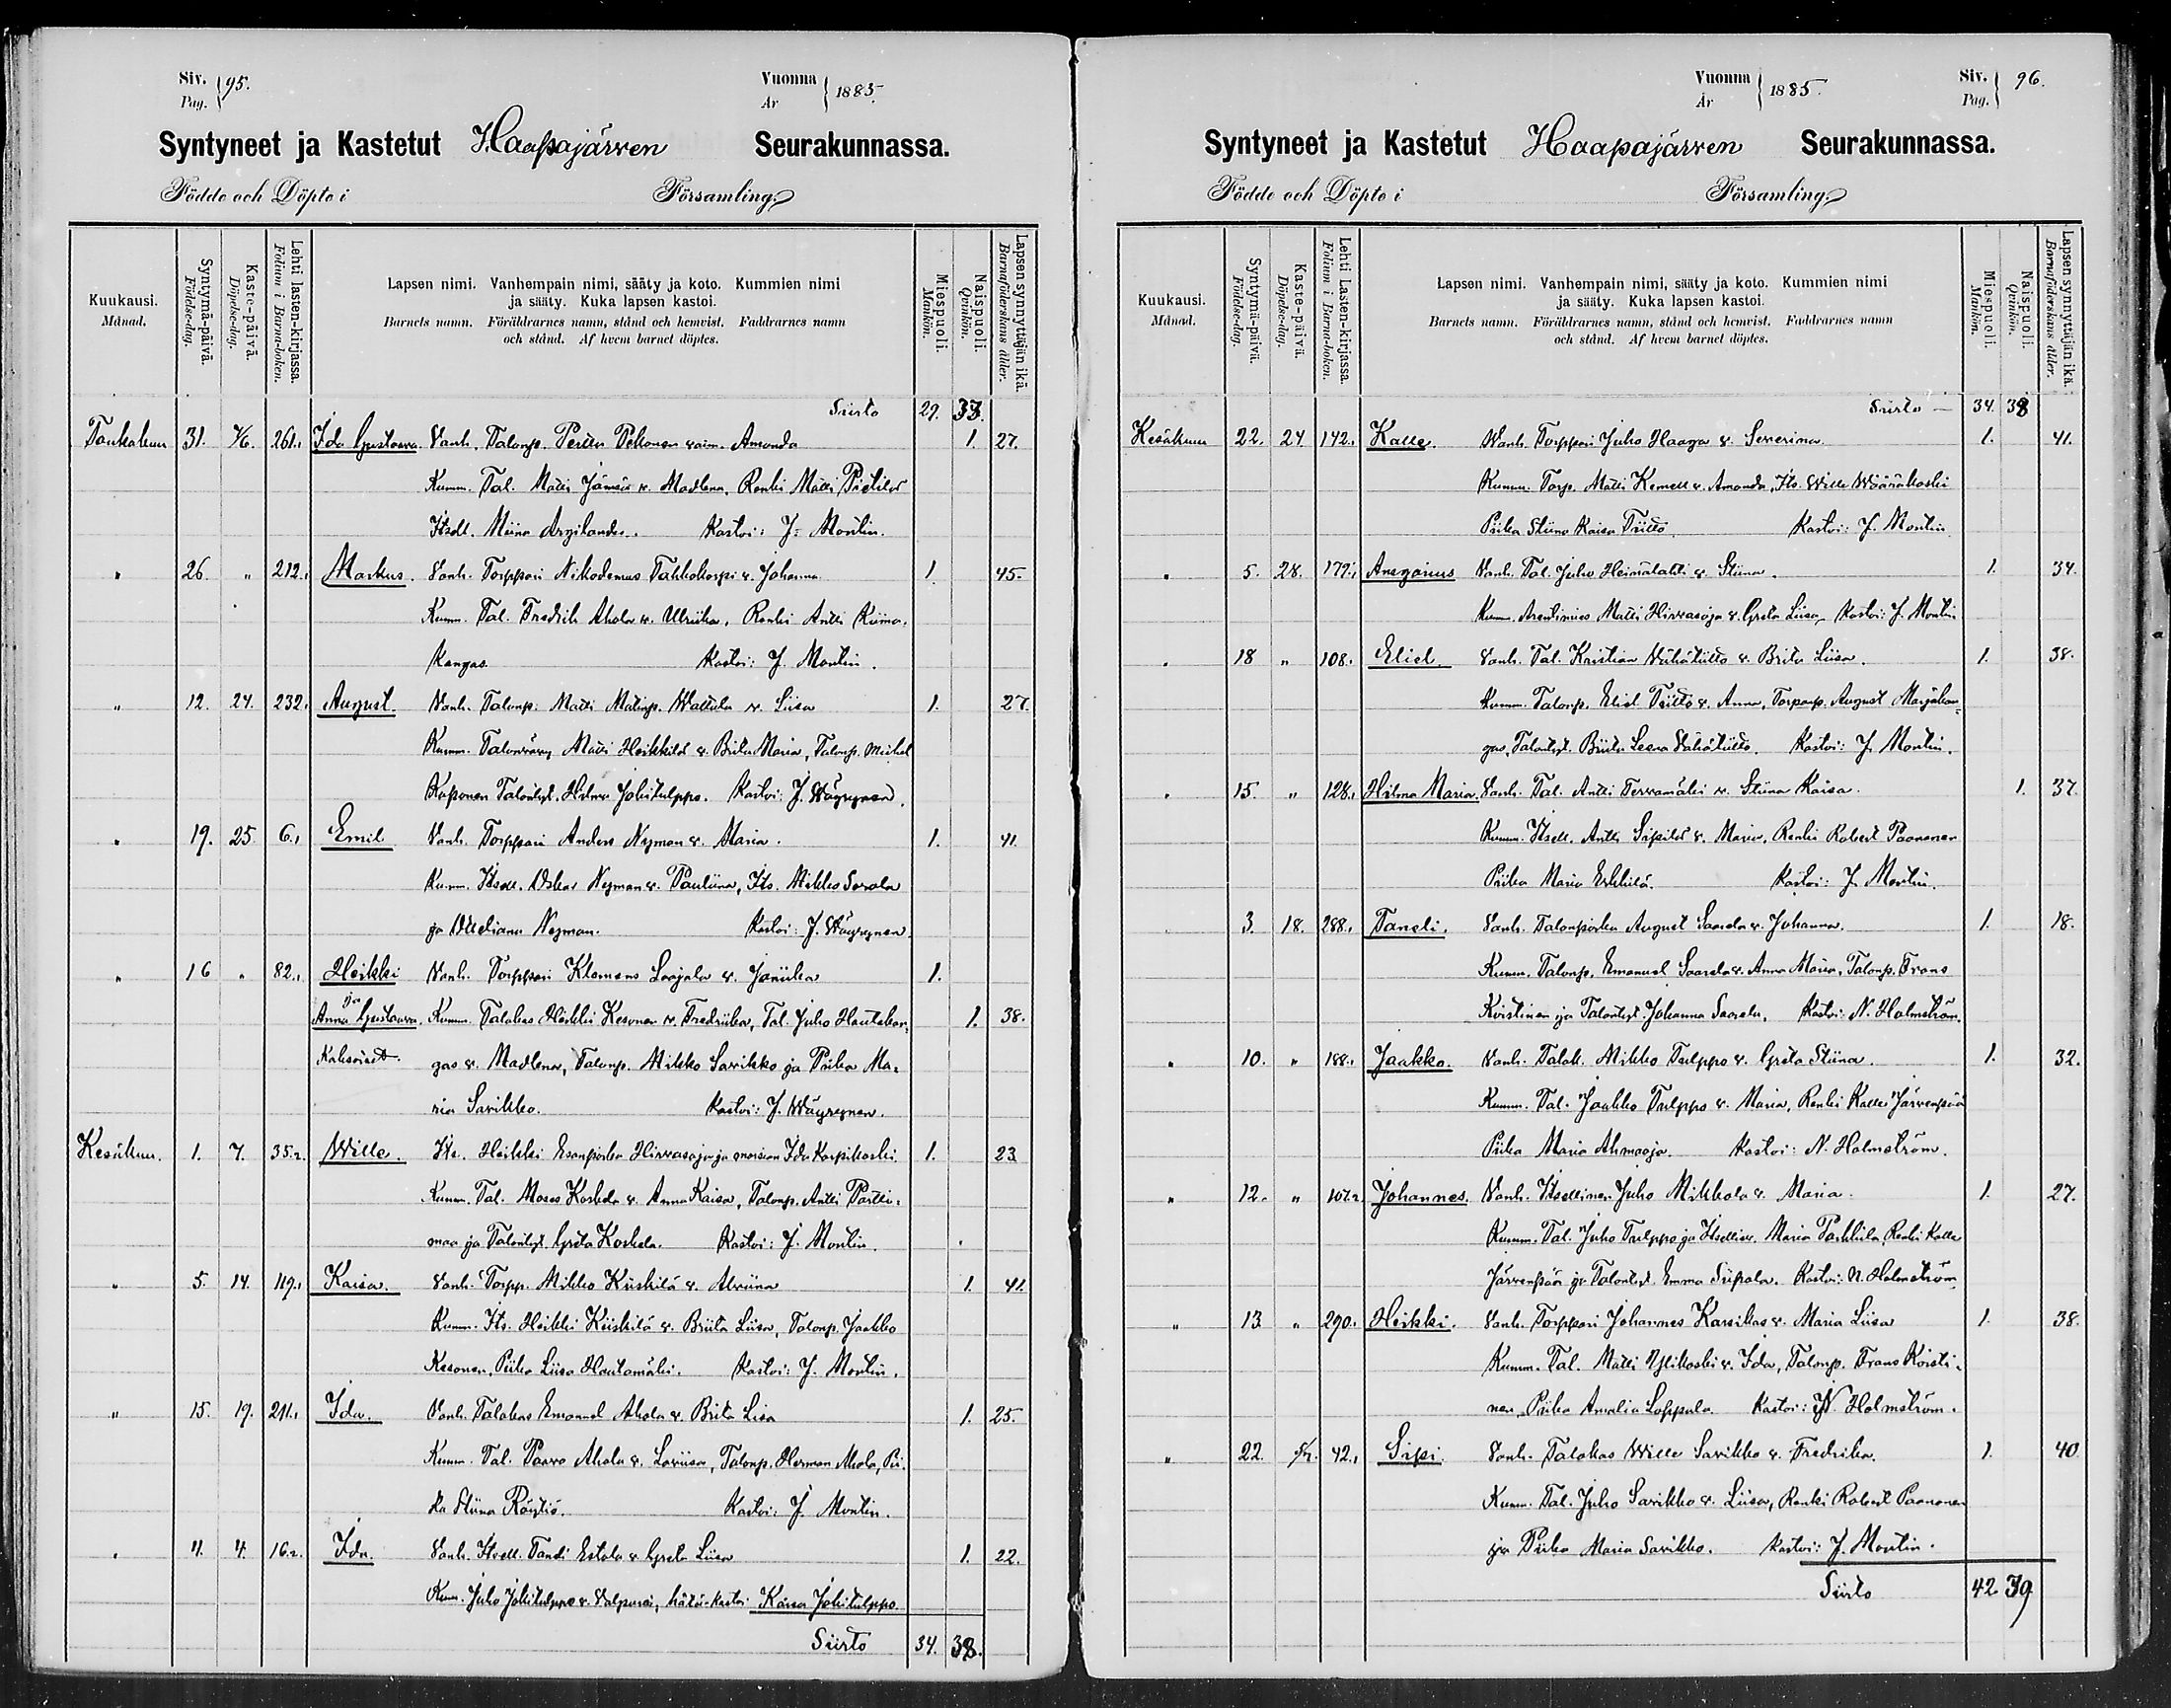 Siv. 95.
Pag.
Vuonna 1885.
År
Syntyneet ja Kastetut Haapajärven Seurakunnassa.
Födde och Döpte i Församling.
Kuukausi. Månad.
Syntymä-päivä. Födelse-dag.
Kaste-päivä. Döpelse-dag.
Lehti lasten-kirjassa. Folium i Barna-boken.
Lapsen nimi. Vanhempain nimi, sääty ja koto. Kummien nimi
ja sääty. Kuka lapsen kastoi.
Barnets namn. Föräldrarnes namn, stånd och hemvist. Faddrarnes namn
och stånd. Af hvem barnet döptes.
Miespuoli. Mankön.
Naispuoli. Qvinkön.
Lapsen synnyttäjän ikä. Barnaföderskans ålder.
Siirto 29. 33.
Toukokuu 31. 7/6. 261.1 Ida Gustava. Vanh. Talonp. Petter Pekonen vaim. Amanda 1. 27.
Kumm. Tal. Matti Jämsä v. Madlena, Renki Matti Pietilä
Itsell. Miina Argilander. Kastoi: J. Montin.
" 26 " 212.1 Markus. Vanh. Torppari Nikodemus Tähkökorpi v. Johanna 1. 45.
Kumm. Tal. Fredrik Ahola v. Ulriika, Renki Antti Kiima-
kangas Kastoi: J. Montin.
" 12. 24. 232.1 August. Vanh. Talonp. Matti Matinp. Wattula v. Liisa 1. 27.
Kumm. Talonvävy Matti Heikkilä v. Brita Maria, Talonp. Michel
Kaponen Talontyt. Hilma Jokitulppo. Kastoi: J. Wäyrynen.
" 19. 25. 6.1 Emil Vanh. Torppari Anders Nyman v. Maria. 1. 41.
Kumm. Itsell. Oskar Nyman v. Pauliina, Its. Mikko Sorola
ja Nyman. Kastoi: J. Wäyrynen.
" 16 " 82.1 Heikki Vanh. Torppari Klemens Laajala v. Janiika 1.
ja
Anna Gustava. Kumm. Talokas Heikki Kesonen v. Fredriika, Tal. Juho Hautakan- 1. 38.
Kaksoiset. gas v. Madlena, Talonp. Mikko Savikko ja Piika Ma-
ria Savikko. Kastoi: J. Wäyrynen.
Kesäkuu. 1. 7. 35.2 Wille. Its. Heikki Esanpoika Hirvasoja ja morsian Ida Karpikoski. 1. 23
Kumm. Tal. Moses Koskela v. Anna Kaisa, Talonp. Antti Partti-
maa ja Talontyt. Greta Koskela. Kastoi: J. Montin.
" 5. 14. 119.1 Kaisa. Vanh. Torpp. Mikko Kiiskilä v. Alviina 1. 41.
Kumm. Its. Heikki Kiiskilä v. Briita Liisa, Talonp. Jaakko
Kesonen, Piika Liisa Hautamäki. Kastoi: J. Montin.
" 15. 19. 211.1 Ida. Vanh. Talokas Emanuel Ahola v. Brita Lisa 1. 25.
Kumm. Tal. Paavo Ahola v. Loviisa, Talonp. Herman Ahola, Pii-
ka Stiina Räytiö. Kastoi: J. Montin.
" 4. 4. 16.2 Ida. Vanh. Itsell. Eetola v. Greta Liisa 1. 22.
Kum. Juho Jokitulppo v. Valpuri, hätä-kastoi Kaisa Jokitulppo.
Siirto 34. 38.
Vuonna 1885.
År
Siv. 96.
Pag.
Syntyneet ja Kastetut Haapajärven Seurakunnassa.
Födde och Döpte i Församling.
Kuukausi. Månad.
Syntymä-päivä. Födelse-dag.
Kaste-päivä. Döpelse-dag.
Lehti Lasten-kirjassa. Folium i Barna-boken.
Lapsen nimi. Vanhempain nimi, sääty ja koto. Kummien nimi
ja sääty. Kuka lapsen kastoi.
Barnets namn. Föräldrarnes namn, stånd och hemvist. Faddrarnes namn
och stånd. Af hvem barnet döptes.
Miespuoli. Mankön.
Naispuoli. Qvinkön.
Lapsen synnyttäjän ikä. Barnaföderskans ålder.
Siirto - 34. 38
Kesäkuu 22. 24 142.1 Kalle. Vanh. Torppari Juho Haaga v. Severina 1. 41.
Kumm. Torp. Matti Kemell v. Amanda, Its. Wille Wääräkoski
Piika Stiina Kaisa Tiitto. Kastoi: J. Montin
" 5. 28. 179.1 Ansgarius Vanh. Tal. Juho Heinälahti v. Stiina. 1. 34.
Kumm. Arentimies Matti Hirvasoja v. Greta Liisa, Kastoi: J. Montin
" 18 " 108.1 Eliel Vanh. Tal. Kristian Vähätiitto v. Brita Liisa. 1. 38.
Kumm. Talonp. Eliel Tiitto v. Anna, Torpanp. August Marjakan-
gas, Talontyt. Briita Leena Vähätiitto. Kastoi: J. Montin.
" 15. " 128.1 Hilma Maria. Vanh. Tal. Antti Tervamäki v. Stiina Kaisa. 1. 37.
Kumm. Itsell. Antti Sipilä v. Maria, Renki Robert Paananen
Piika Maria Erkkilä. Kastoi: J. Montin.
3. 18. 288.1 Taneli. Vanh. Talonpoika August Saarela v. Johanna. 1. 18.
Kumm. Talonp. Emanuel Saarela v. Anna Maria, Talonp. Frans
Koistinen ja Talontyt. Johanna Saarela. Kastoi: N. Holmström.
" 10. " 188.1 Jaakko. Vanh. Talok. Mikko Tulppo v. Greta Stiina. 1. 32.
Kumm. Tal. Jaakko Tulppo v. Maria, Renki Kalle Järvenpää
Piika Maria Ahmaoja. Kastoi: N. Holmström.
" 12. " 107.2 Johannes. Vanh. Itsellinen Juho Mikkola v. Maria. 1. 27.
Kumm. Tal. Juho Tulppo ja Itsellin. Maria Parkkila, Renki Kalle
Järvenpää ja Talontyt. Emma Siipola. Kastoi: N. Holmström
" 13 " 290.1 Heikki. Vanh. Torppari Johannes Karsikas v. Maria Liisa 1. 38.
Kumm. Tal. Matti Ylikoski v. Ida, Talonp. Frans Koisti-
nen, Piika Amalia Loppula. Kastoi: N. Holmström.
" 22. 42.1 Sipi. Vanh. Talokas Wille Savikko v. Fredrika. 1. 40
Kumm. Tal. Juho Savikko v. Liisa, Renki Robert Paananen
ja Piika Maria Savikko. Kastoi: J. Montin.
Siirto 42. 39